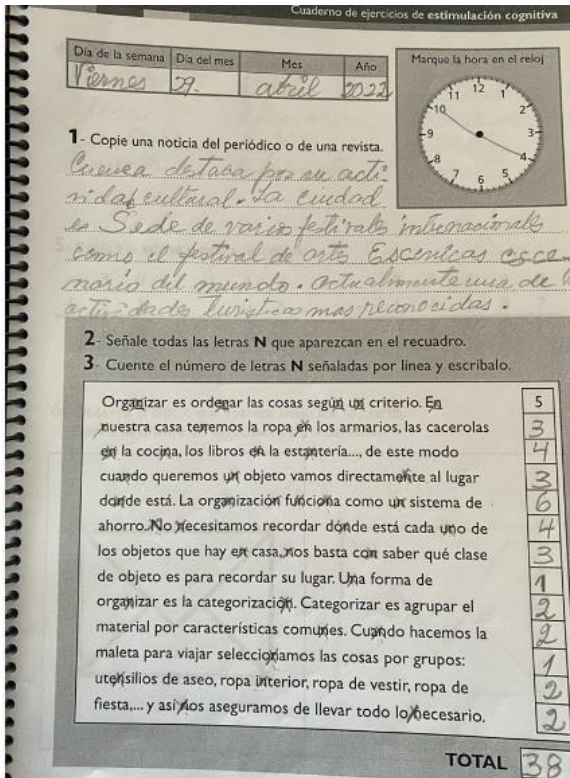 Cuaderno de ejercicios de estimulación cognitiva
Día de la semana Día del mes Mes Año
Viernes 29. abril 2022
Marque la hora en el reloj
11 12 1
10 2
9 3
8 4
7 6 5
1- Copie una noticia del periódico o de una revista.
Cuenca destaca por su acti-
vidad cultural. La ciudad
es Sede de varios festivales internacionales
como el festival de artes Escenicas esce-
nario del mundo. actualmente una de
actividades turisticas mas reconocidas.
2- Señale todas las letras N que aparezcan en el recuadro.
3- Cuente el número de letras N señaladas por línea y escríbalo.
Organizar es ordenar las cosas según un criterio. En 5
nuestra casa tenemos la ropa en los armarios, las cacerolas 3
en la cocina, los libros en la estantería..., de este modo 4
cuando queremos un objeto vamos directamente al lugar 3
donde está. La organización funciona como un sistema de 6
ahorro. No necesitamos recordar dónde está cada uno de 4
los objetos que hay en casa, nos basta con saber qué clase 3
de objeto es para recordar su lugar. Una forma de 1
organizar es la categorización. Categorizar es agrupar el 2
material por características comunes. Cuando hacemos la 2
maleta para viajar seleccionamos las cosas por grupos: 1
utensilios de aseo, ropa interior, ropa de vestir, ropa de 2
fiesta,... y así nos aseguramos de llevar todo lo necesario. 2
TOTAL 38